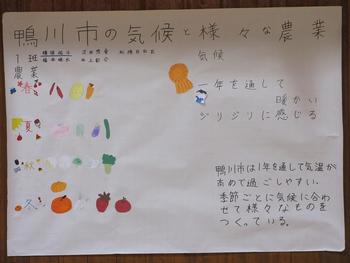 鴨川市の気候と様々な農業
1班
農業
気候
一年を通して
暖かい
ジリジリに感じる
春
夏
秋
冬
鴨川市は1年を通して気温が
高めで過ごしやすい。
季節ごとに気候に合わ
せて様々なものを
つくっている。